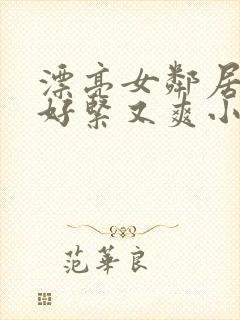 漂亮女邻居
好紧又爽小
范华良